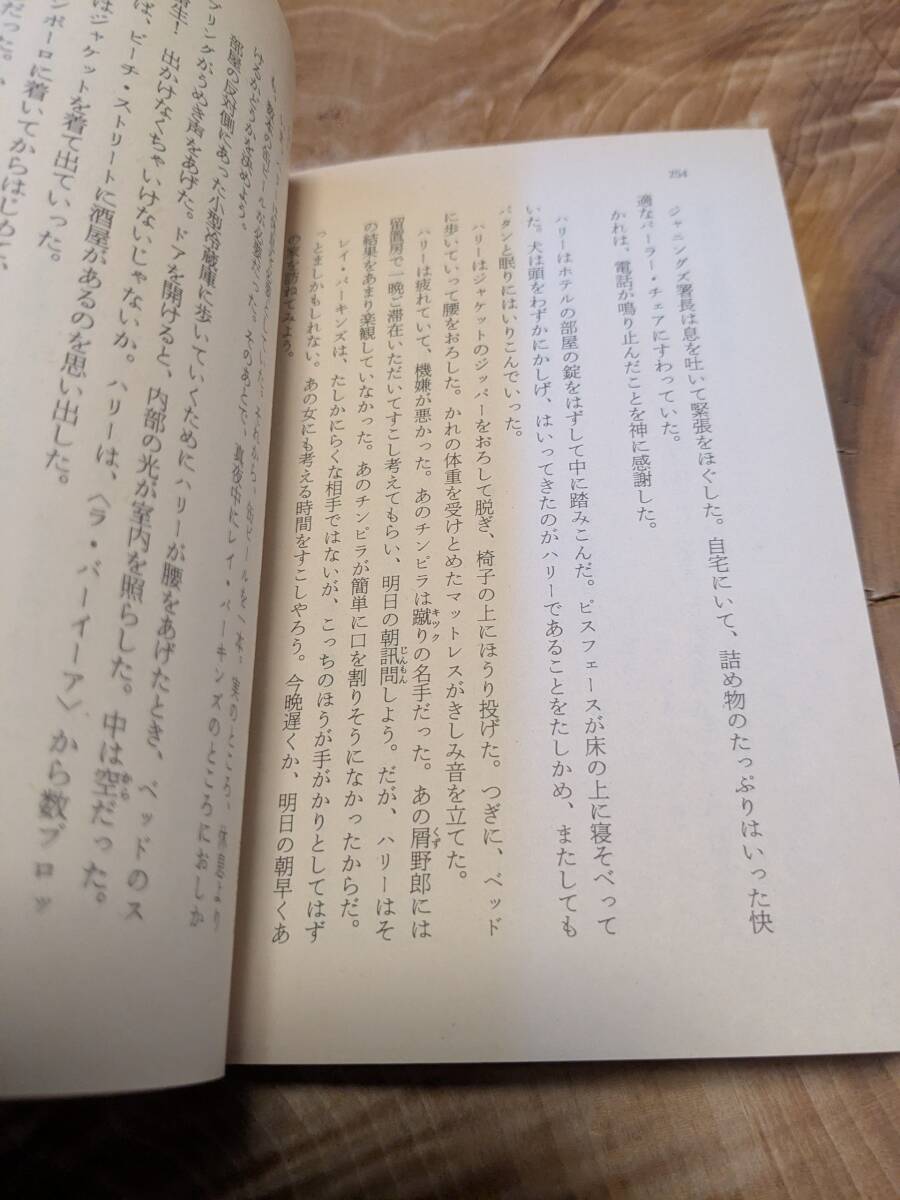 254
ジャニングズ署長は息を吐いて緊張をほぐした。自宅にいて、詰め物のたっぷりはいった快
適なパーラー・チェアにすわっていた。
かれは、電話が鳴り止んだことを神に感謝した。
ハリーはホテルの部屋の錠をはずして中に踏みこんだ。ピスフェースが床の上に寝そべって
いた。犬は頭をわずかにかしげ、はいってきたのがハリーであることをたしかめ、またしても
パタンと眠りにはいりこんでいった。
ハリーはジャケットのジッパーをおろして脱ぎ、椅子の上にほうり投げた。つぎに、ベッド
に歩いていって腰をおろした。かれの体重を受けとめたマットレスがきしみ音を立てた。
ハリーは疲れていて、機嫌が悪かった。あのチンピラは蹴りの名手だった。あの屑野郎には
キック
くず
留置房で一晩ご滞在いただいてすこし考えてもらい、明日の朝訊問しよう。だが、ハリーはそ
じんもん
の結果をあまり楽観していなかった。あのチンピラが簡単に口を割りそうになかったからだ。
レイ・パーキンズは、たしかにらくな相手ではないが、こっちのほうが手がかりとしてはず
っとましかもしれない。あの女にも考える時間をすこしやろう。今晩遅くか、明日の朝早くあ
の家を訪ねてみよう。
それから、缶ビールを一本。実のところ、休息より
も、数本の缶ビールが必要だった。そのあとで、真夜中にレイ・パーキンズのところにおしか
けるかどうかを決めよう。
部屋の反対側にあった小型冷蔵庫に歩いていくためにハリーが腰をあげたとき、ベッドのス
プリングがうめき声をあげた。ドアを開けると、内部の光が室内を照らした。中は空だった。
から
生！ 出かけなくちゃいけないじゃないか。ハリーは、〈ラ・バーイーア〉から数ブロッ
ば、ピーチ・ストリートに酒屋があるのを思い出した。
はジャケットを着て出ていった。
ンポーロに着いてからはじめて、
だった。